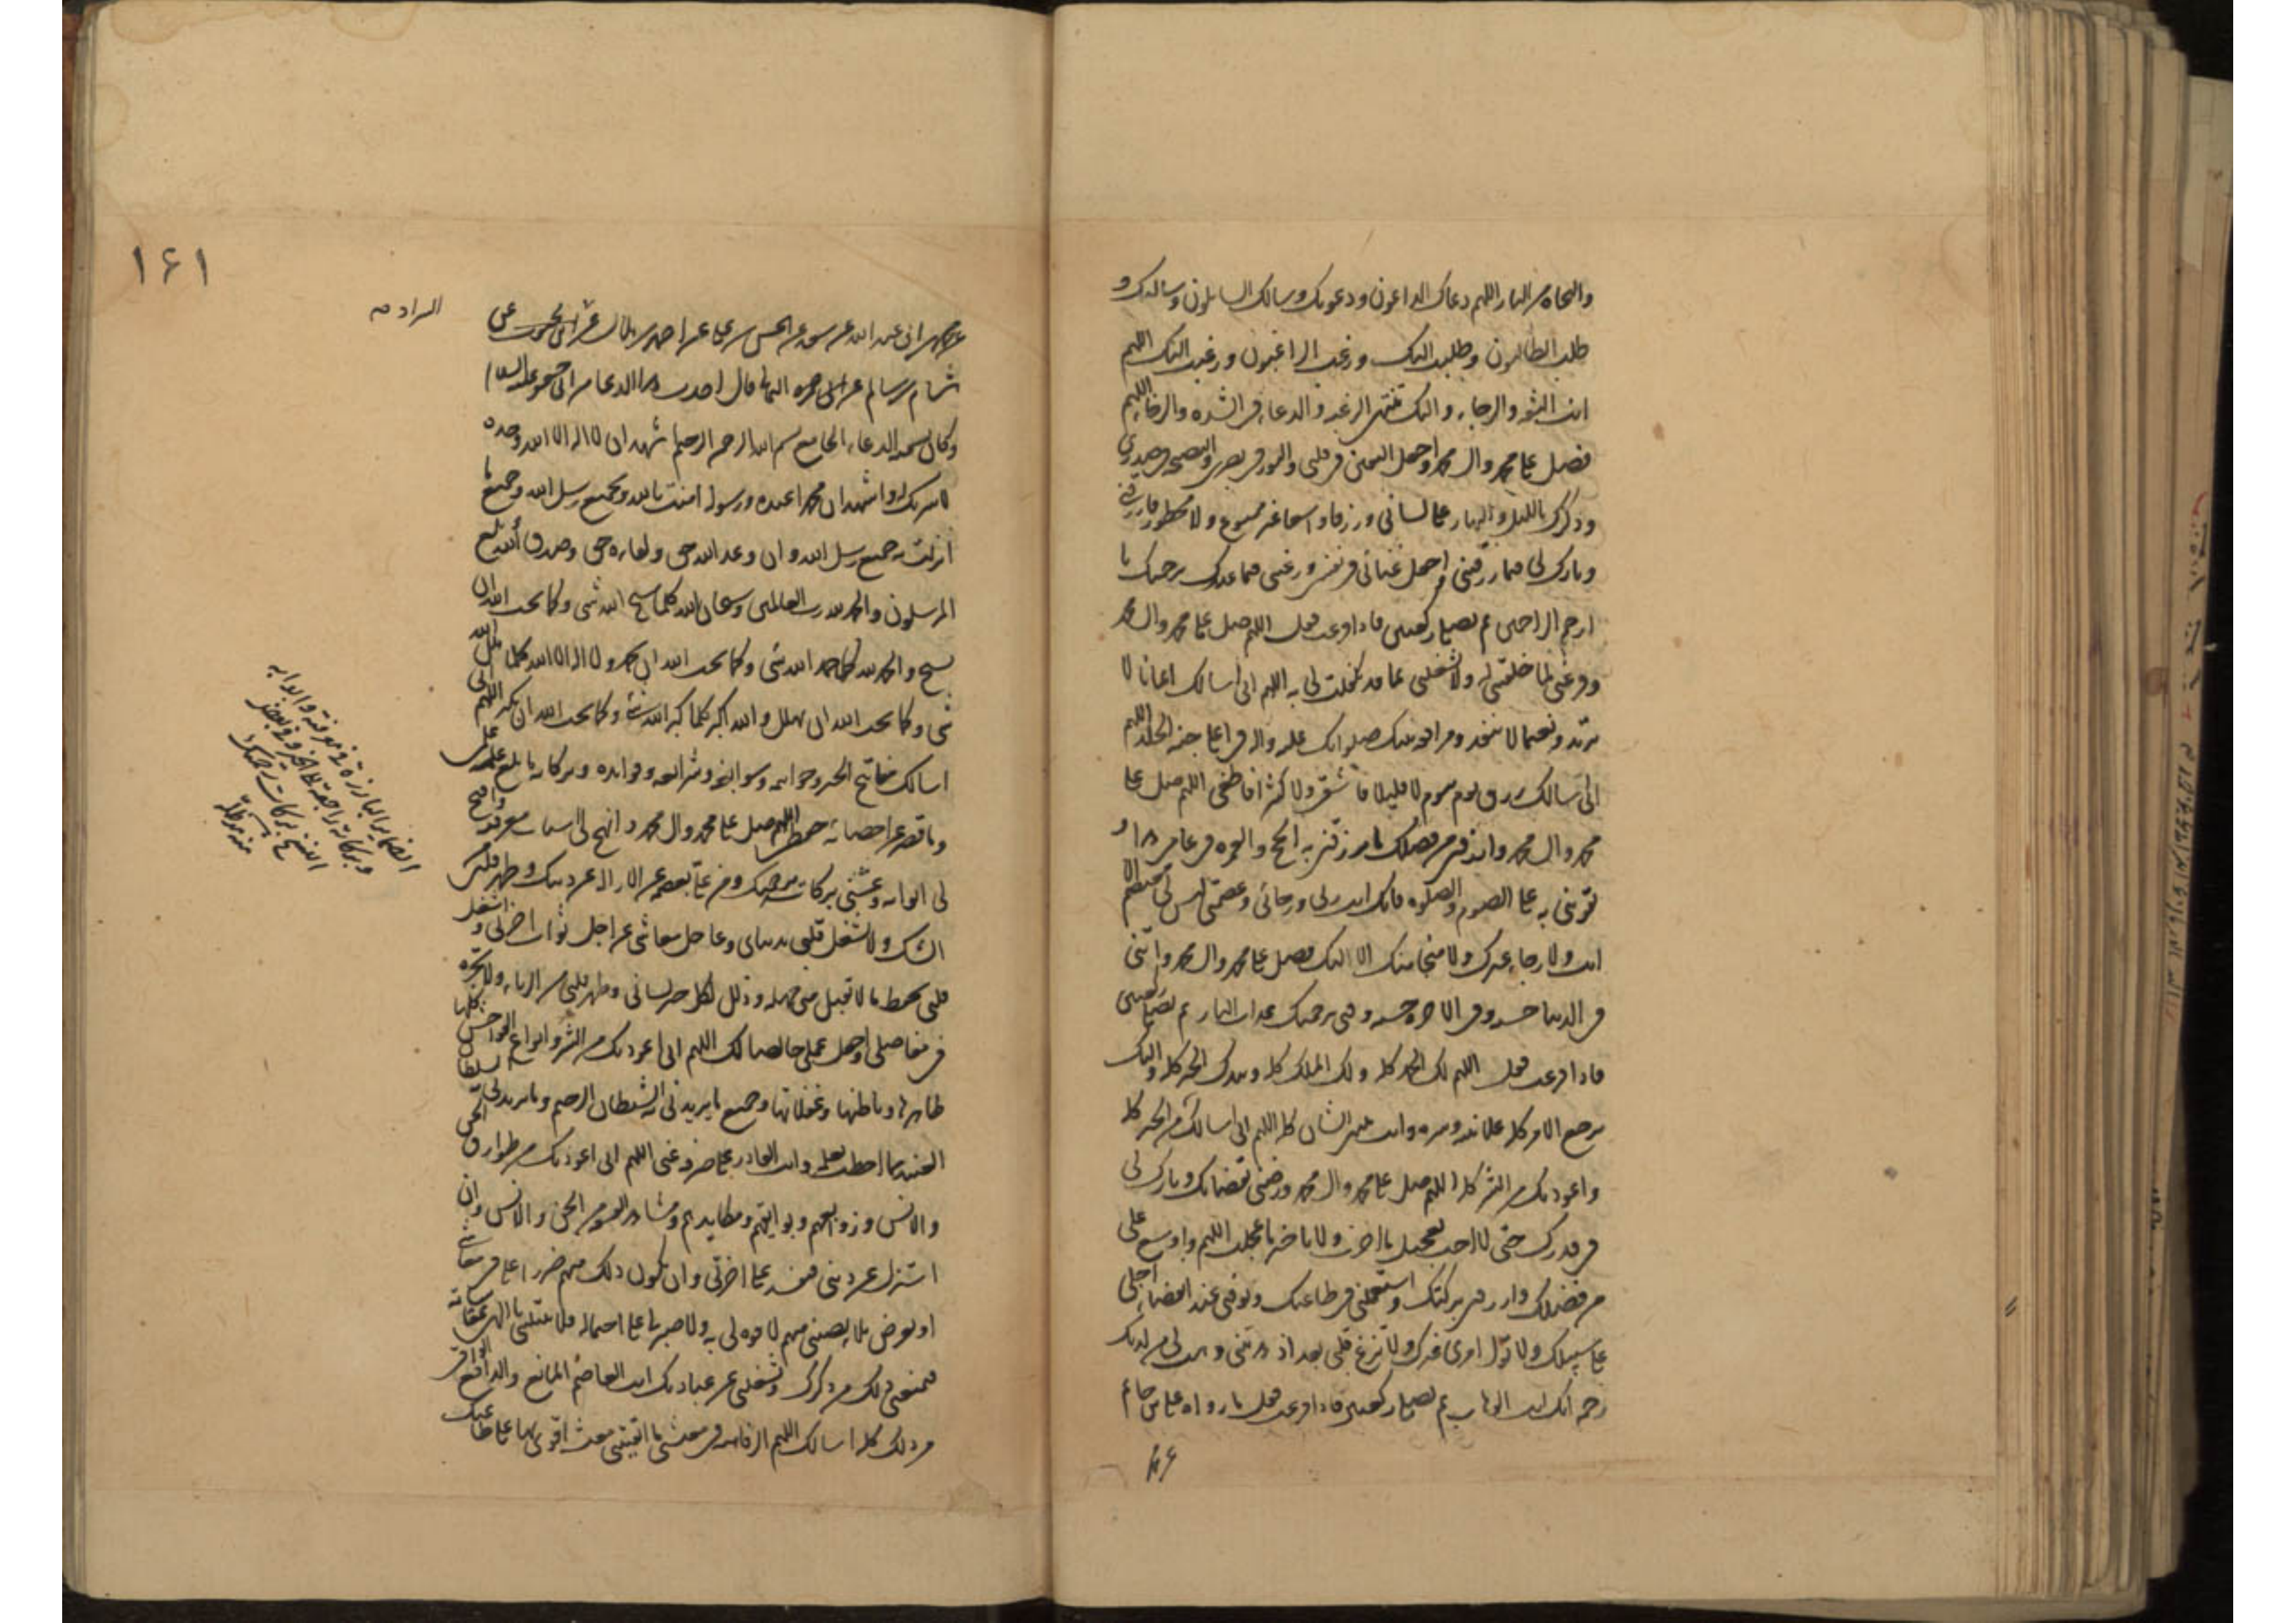 والنجاه من النار اللهم دعاك الداعون ودعوتك وسالك السايلون وسالتك و
طلب الطالبون وطلبت اليك ورغب الراغبون ورغبت اليك اللهم
انت الثقه والرجاء واليك منتهى الرغبه والدعاء في الشده والرخاء اللهم
فصل على محمد وال محمد واجعل اليقين في قلبي والنور في بصري والنصيحه في صدري
وذكرك بالليل والنهار على لساني ورزقا واسعا غير ممنوع ولا محظور فارزقني
وبارك لي فيما رزقتني واجعل غناي في نفسي ورغبتي فيما عندك برحمتك يا
ارحم الراحمين ثم تصلي ركعتين فاذا فرغت فقل اللهم صل على محمد وال محمد
وفرغني لما خلقتني له ولا تشغلني بما قد تكفلت لي به اللهم اني اسالك ايمانا لا
يرتد ونعيما لا ينفد ومرافقه نبيك صلواتك عليه واله في اعلى جنه الخلد اللهم
اني اسالك رزق يوم بيوم لا قليلا فاشقى ولا كثيرا فاطغى اللهم صل على
محمد وال محمد وارزقني من فضلك ما ترزقني به الحج والعمره في عامي هذا و
تقويني به على الصوم والصلوه فانك انت ربي ورجائي وعصمتي ليس لي معتصم الا
انت ولا رجاء غيرك ولا منجا منك الا اليك فصل على محمد وال محمد واتني
في الدنيا حسنه وفي الاخره حسنه وقني برحمتك عذاب النار ثم تصلي ركعتين
فاذا فرغت فقل اللهم لك الحمد كله ولك الملك كله وبيدك الخير كله واليك
يرجع الامر كله علانيته وسره وانت منتهى الشان كله اللهم اني اسالك من الخير كله
واعوذ بك من الشر كله اللهم صل على محمد وال محمد ورضني بقضائك وبارك لي
في قدرك حتى لا احب تعجيل ما اخرت ولا تاخير ما عجلت اللهم واوسع علي
من فضلك وارزقني بركتك واستعملني في طاعتك وتوفني عند انقضاء اجلي
على سبيلك ولا تول امري غيرك ولا تزغ قلبي بعد اذ هديتني وهب لي من لدنك
رحمه انك انت الوهاب ثم تصلي ركعتين فاذا فرغت فقل ما رواه علي بن حاتم
١٦١
السراد
عن محمد بن ابي عبد الله عن سعد عن الحسن بن علي عن احمد بن هلال عن ابن محبوب عن
هشام بن سالم عن ابي حمزه الثمالي قال اخذت هذا الدعا من ابي جعفر عليه السلام
وكان يسميه الدعاء الجامع بسم الله الرحمن الرحيم اشهد ان لا اله الا الله وحده
لا شريك له واشهد ان محمدا عبده ورسوله امنت بالله وبجميع رسل الله وجميع ما
انزلت به جميع رسل الله وان وعد الله حق ولقاءه حق وصدق الله وبلغ
المرسلون والحمد لله رب العالمين وسبحان الله كلما سبح الله شي وكما يحب الله ان
يسبح والحمد لله كلما حمد الله شي وكما يحب الله ان يحمد ولا اله الا الله كلما هلل الله
شي وكما يحب الله ان يهلل والله اكبر كلما كبر الله شي وكما يحب الله ان يكبر اللهم اني
اسالك مفاتيح الخير وخواتيمه وسوابغه وشرائعه وفوائده وبركاته ما بلغ علمه علمي
وما قصر عن احصائه حفظي اللهم صل على محمد وال محمد وانهج لي اسباب معرفته وافتح
لي ابوابه وغشني بركات رحمتك ومن علي بعصمه عن الازاله عن دينك وطهر قلبي من
الشك ولا تشغل قلبي بدنياي وعاجل معاشي عن اجل ثواب اخرتي واشغل
قلبي بحفظ ما لا تقبل مني جهله وذلل لكل خير لساني وطهر قلبي من الرياء ولا تجره
في مفاصلي واجعل عملي خالصا لك اللهم اني اعوذ بك من الشر وانواع الفواحش كلها
ظاهرها وباطنها وغفلاتها وجميع ما يريدني به الشيطان الرجيم وما يريدني به السلطان
العنيد مما احطت بعلمه وانت القادر على صرفه عني اللهم اني اعوذ بك من طوارق الجن
والانس وزوابعهم وبوايقهم ومكايدهم ومشاهد الفسقه من الجن والانس وان
استزل عن ديني فتفسد علي اخرتي وان يكون ذلك منهم ضررا علي في معاشي
او بعرض بلاء يصيبني منهم لا قوه لي به ولا صبر لي على احتماله فلا تبتلني يا الهي بمقاساته
فيمنعني ذلك من ذكرك ويشغلني عن عبادتك انت العاصم المانع والدافع الواقي
من ذلك كله اسالك اللهم الرفاهيه في معيشتي ما ابقيتني معيشه اقوى بها على طاعتك